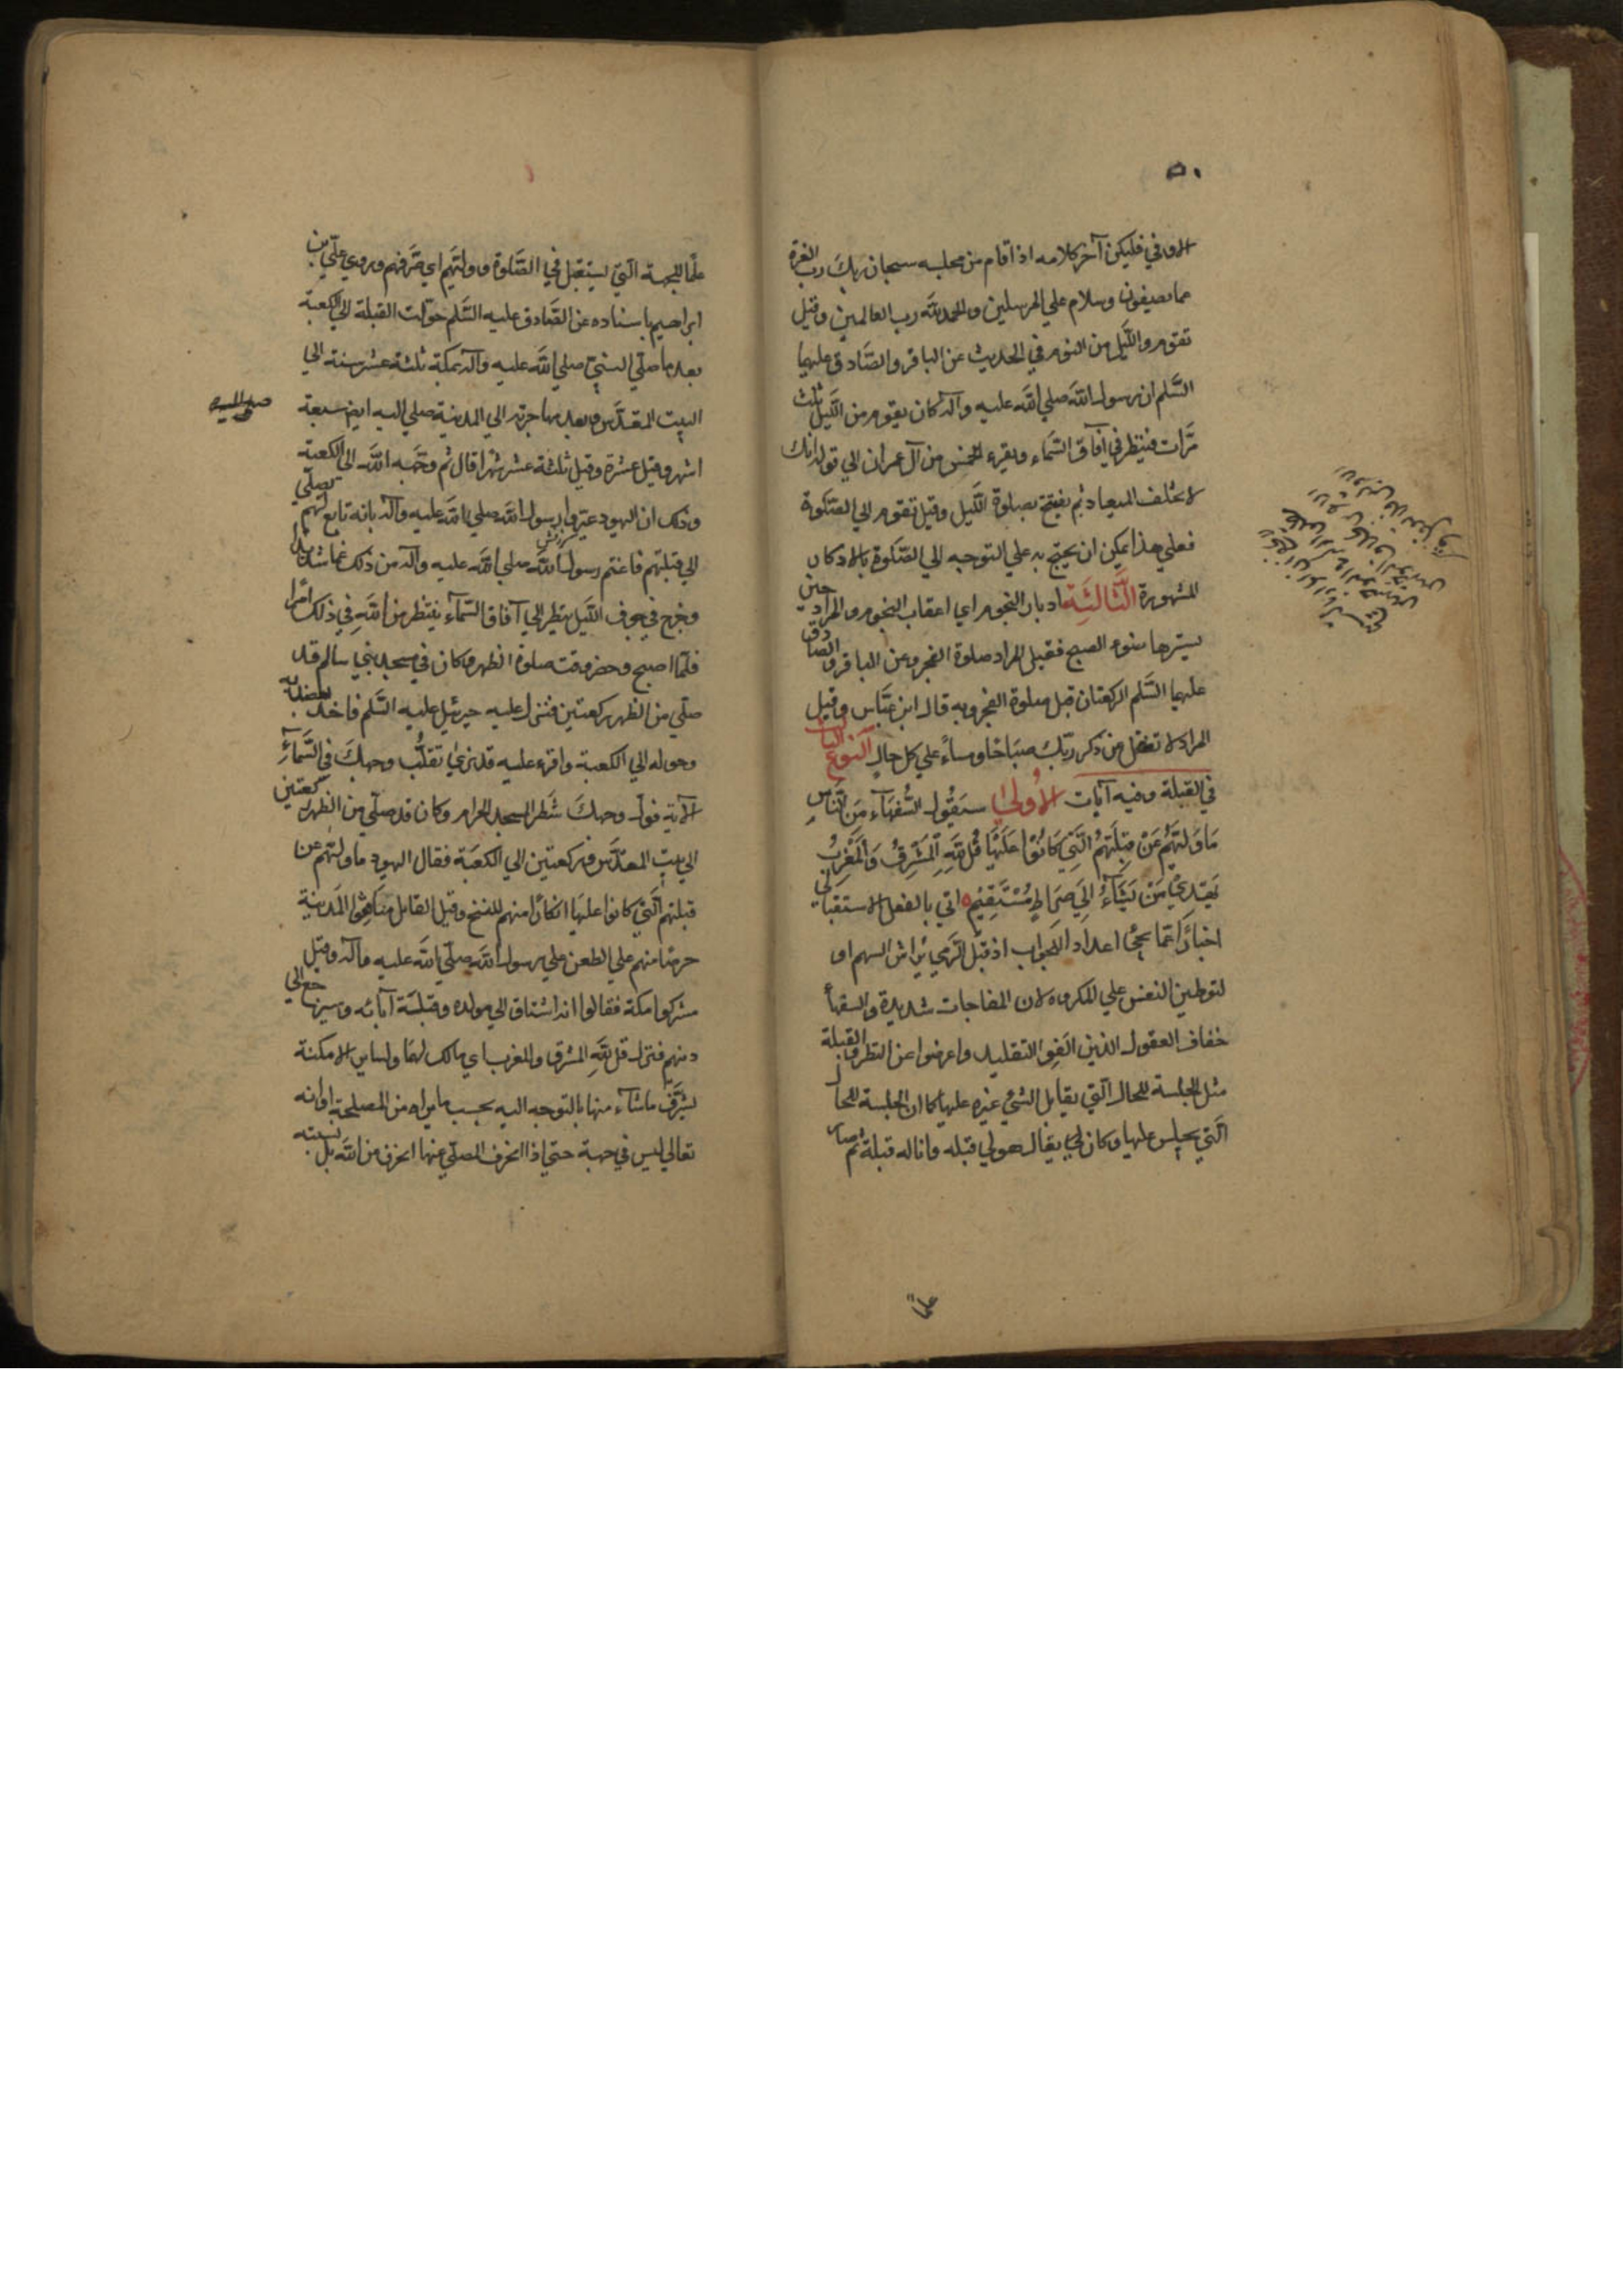 ٥٠
الاوفي فليكن آخر كلامه اذا قام من مجلسه سبحان ربك رب العزة
عما يصفون وسلام علي المرسلين والحمد لله رب العالمين وقيل
تقوم والليل من النوم في الحديث عن الباقر والصادق عليهما
السلم ان رسول الله صلي الله عليه وآله كان يقوم من الليل ثلث
مرات فينظر في آفاق السماء ويقرء الخمس من آل عمران الي قوله انك
لا تخلف الميعاد ثم يفتتح بصلوة الليل وقيل تقوم الي الصلوة
فعلي هذا يمكن ان يحتج به علي التوجه الي الصلوة بالاذكار
المشهورة الثالثة ادبار النجوم اي اعقاب النجوم والمراد حين
يسترها ضوء الصبح فقيل المراد صلوة الفجر وعن الباقر والصادق
عليهما السلم الركعتان قبل صلوة الفجر وبه قال ابن عباس وقيل
المراد لا تغفل من ذكر ربك صباحا ومساء علي كل حال النوع الثالث
في القبلة وفيه آيات الاولي سَيَقُولُ السُّفَهَاءُ مِنَ النَّاسِ
مَا وَلّيهُمْ عَنْ قِبْلَتِهِمُ الَّتِي كَانُوْا عَلَيْهَا قُلْ لِلّهِ الْمَشْرِقُ وَالْمَغْرِبُ
يَهْدِيْ مَنْ يَشَاءُ اِلي صِرَاطٍ مُسْتَقِيْمٍ اتي بالفعل الاستقبالي
اخبارا عما يجئ اعدادا للجواب اذ قبل الرمي يراش السهم او
لتوطين النفس علي المكروه لان المفاجات شديدة والسفهاء
خفاف العقول الذين الفوا التقليد واعرضوا عن النظر والقبلة
مثل الجلسة للحال التي يقابل الشئ غيره عليها كما ان الجلسة للحال
التي يجلس عليها وكان يقال هو لي قبلة وانا له قبلة ثم صار
علما
علما للجهة التي يستقبل في الصلوة وولّيهم اي صرفهم وروي علي بن
ابراهيم باسناده عن الصادق عليه السلم حولت القبلة الي الكعبة
بعد ما صلي النبي صلي الله عليه وآله بمكة ثلثة عشر سنة الي
البيت المقدس وبعد مهاجرته الي المدينة صلي اليه ايضا سبعة
اشهر وقيل عشرة وقيل ثلثة عشر شهرا قال ثم وجهه الله الي الكعبة
وذلك ان اليهود عيروا رسول الله صلي الله عليه وآله بانه تابع لهم يصلي
الي قبلتهم فاغتم رسول الله صلي الله عليه وآله من ذلك غما شديدا
وخرج في جوف الليل ينظر الي آفاق السماء ينتظر من الله في ذلك امرا
فلما اصبح وحضر وقت صلوة الظهر وكان في مسجد بني سالم قد
صلي من الظهر ركعتين فنزل عليه جبرئيل عليه السلم فاخذ بعضديه
وحوله الي الكعبة واقرء عليه قد نري تقلب وجهك في السماء
الآية فول وجهك شطر المسجد الحرام وكان قد صلي من الظهر ركعتين
الي بيت المقدس وركعتين الي الكعبة فقال اليهود ما وليهم عن
قبلتهم التي كانوا عليها انكارا منهم للنسخ وقيل القايل منافقوا المدينة
حرصا منهم علي الطعن علي رسول الله صلي الله عليه وآله وقيل
مشركوا مكة فقالوا انه اشتاق الي مولده وقبلة آبائه وسيرجع الي
دينهم فنزل قل لله المشرق والمغرب اي مالك لهما ولساير الامكنة
يشرف ما شاء منها بالتوجه اليه بحسب ما يراه من المصلحة او انه
تعالي ليس في جهة حتي اذا انحرف المصلي عنها انحرف من الله بل نسبته